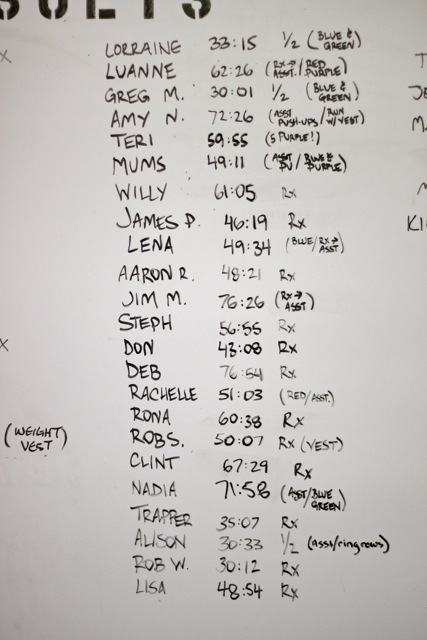 LORRAINE 33:15 1/2 (BLUE & GREEN)
LUANNE 62:26 (Rx→ ASST./RED PURPLE)
GREG M. 30:01 1/2 (BLUE & GREEN)
AMY N. 72:26 (ASST PUSH-UPS/RUN W/VEST)
TERI 59:55 (5 PURPLE!)
MUMS 49:11 (ASST PU/BLUE & PURPLE)
WILLY 61:05 Rx
JAMES P. 46:19 Rx
LENA 49:34 (BLUE/Rx→ ASST)
AARON R. 48:21 Rx
JIM M. 76:26 (Rx→ ASST)
STEPH 56:55 Rx
X DON 43:08 Rx
DEB 76:54 Rx
RACHELLE 51:03 (RED/ASST.)
RONA 60:38 Rx
(WEIGHT VEST) ROB S. 50:07 Rx (VEST)
CLINT 67:29 Rx
NADIA 71:58 (ASST/BLUE GREEN)
TRAPPER 35:07 Rx
ALISON 30:33 1/2 (asst/ring rows)
ROB W. 30:12 Rx
LISA 48:54 Rx